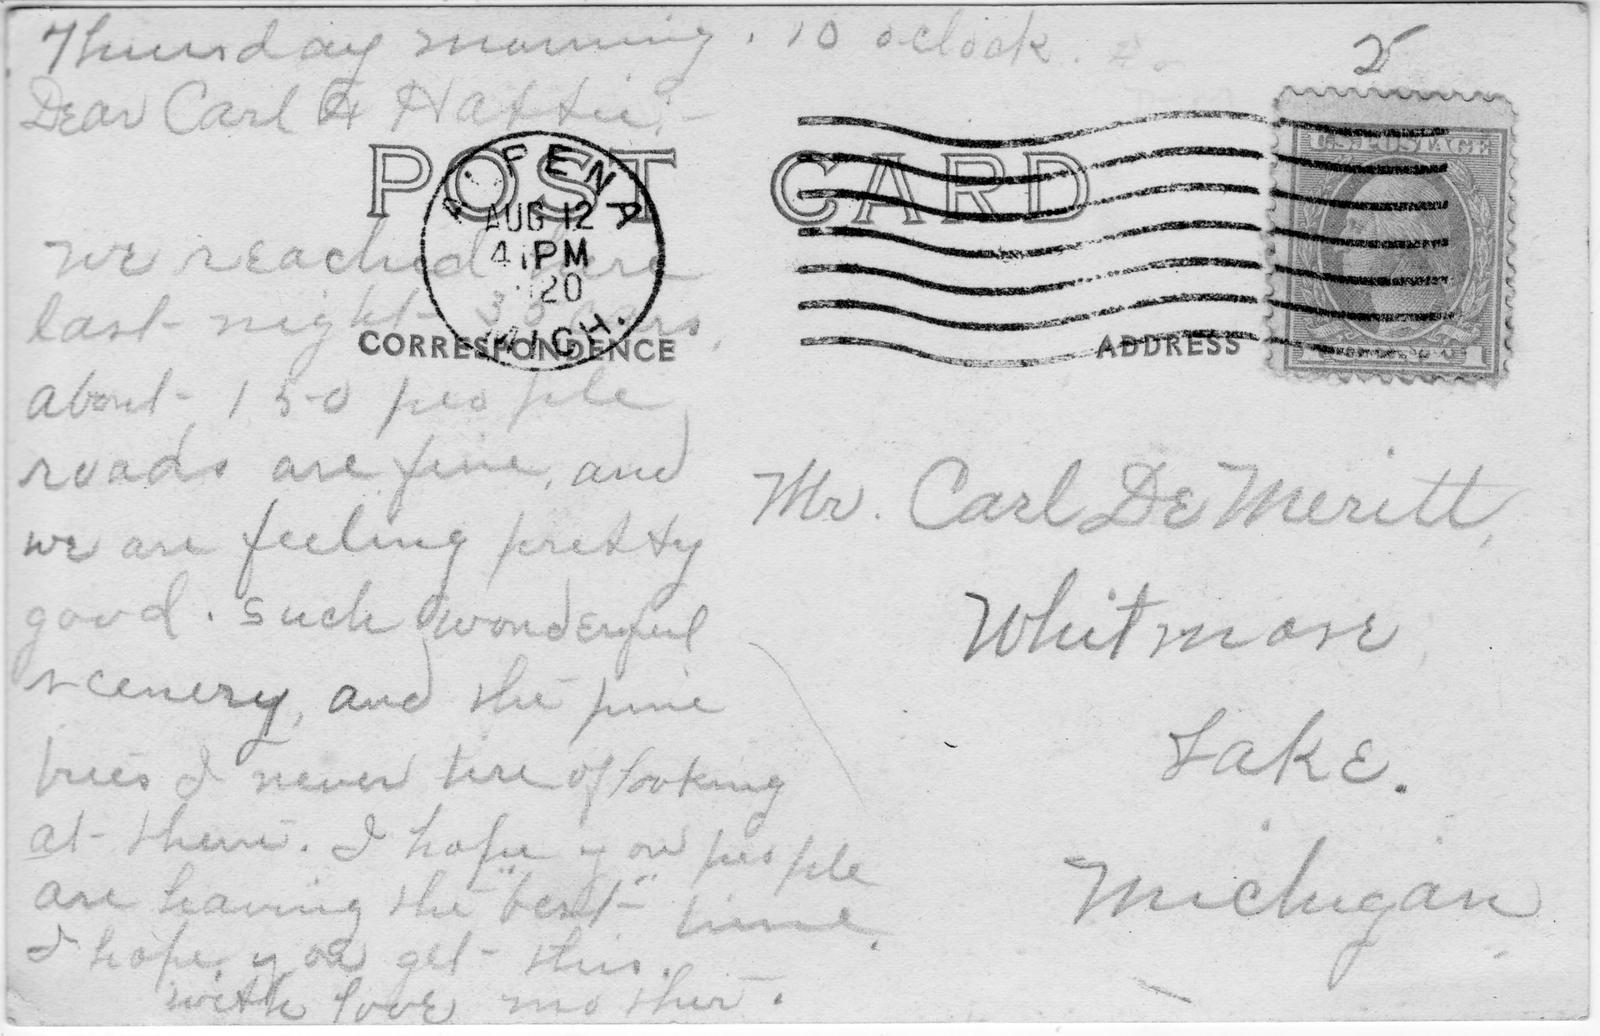 Thursday morning. 10 o'clock.
Dear Carl & Hattie:-
2
POST CARD
U.S. POSTAGE
ALPENA
AUG 12
4 PM
'20
MICH.
CORRESPONDENCE
ADDRESS
We reached here
last night 33 cars,
about 150 people
roads are fine, and
we are feeling pretty
good. such wonderful
scenery, and the pine
trees I never tire of looking
at them. I hope you people
are having the "best" time.
I hope you get this.
with love mother.
Mr. Carl DeMeritt,
Whitmore
Lake.
Michigan